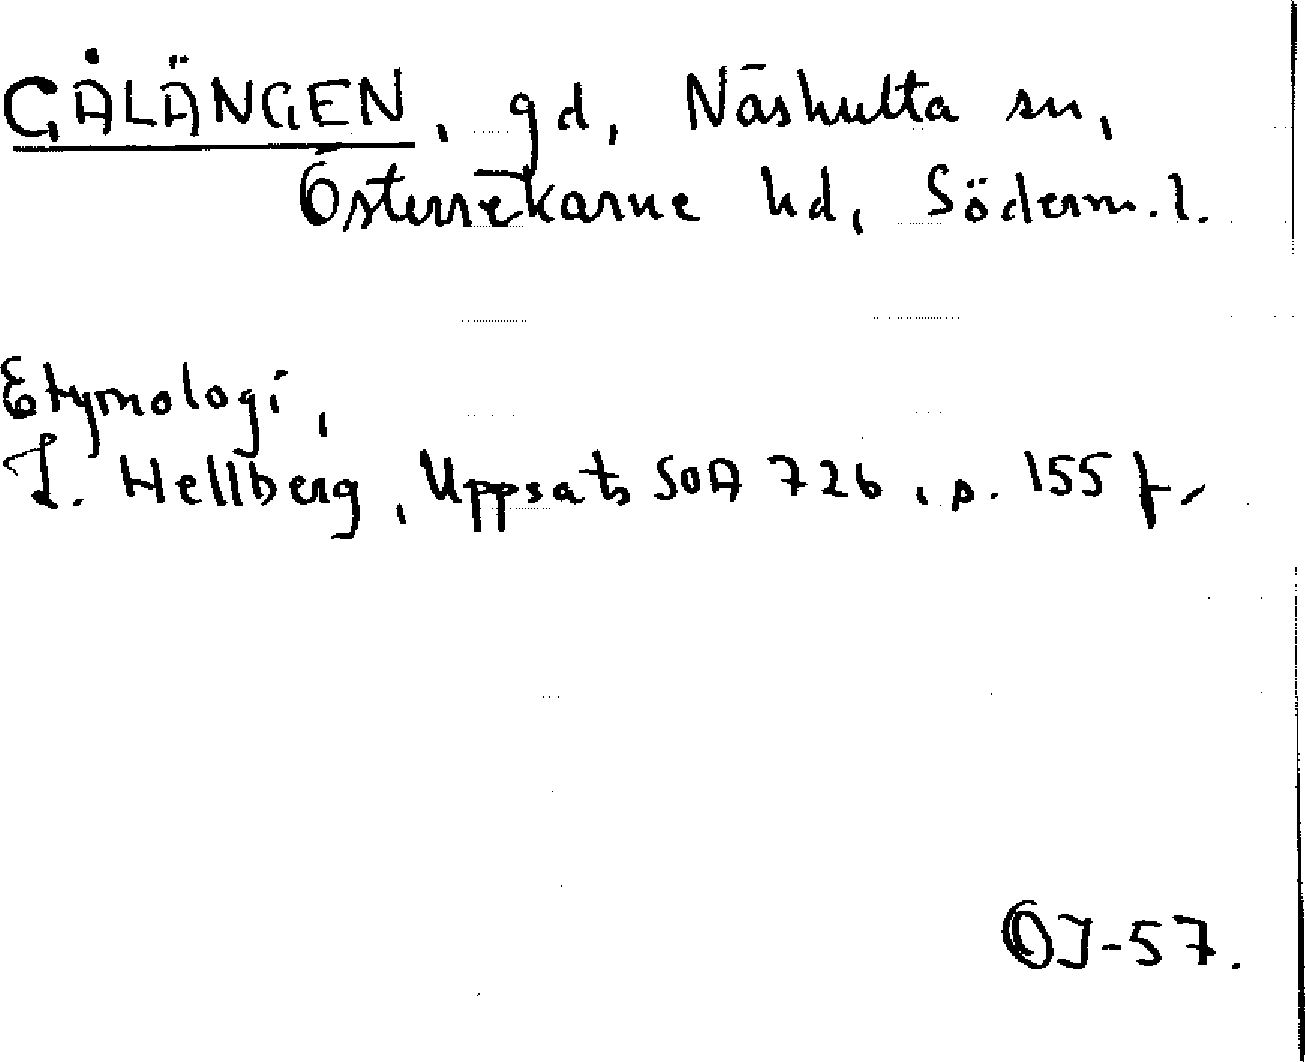 GÅLÄNGEN, gd, Näshulta sn,
Österrekarne hd, Söderm. l.
Etymologi,
L. Hellberg, Uppsats SOA 726, s. 155 f.
OJ-57.